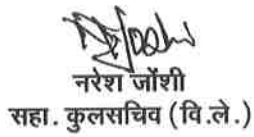 नरेश जोंशी
सहा. कुलसचिव (वि.ले.)